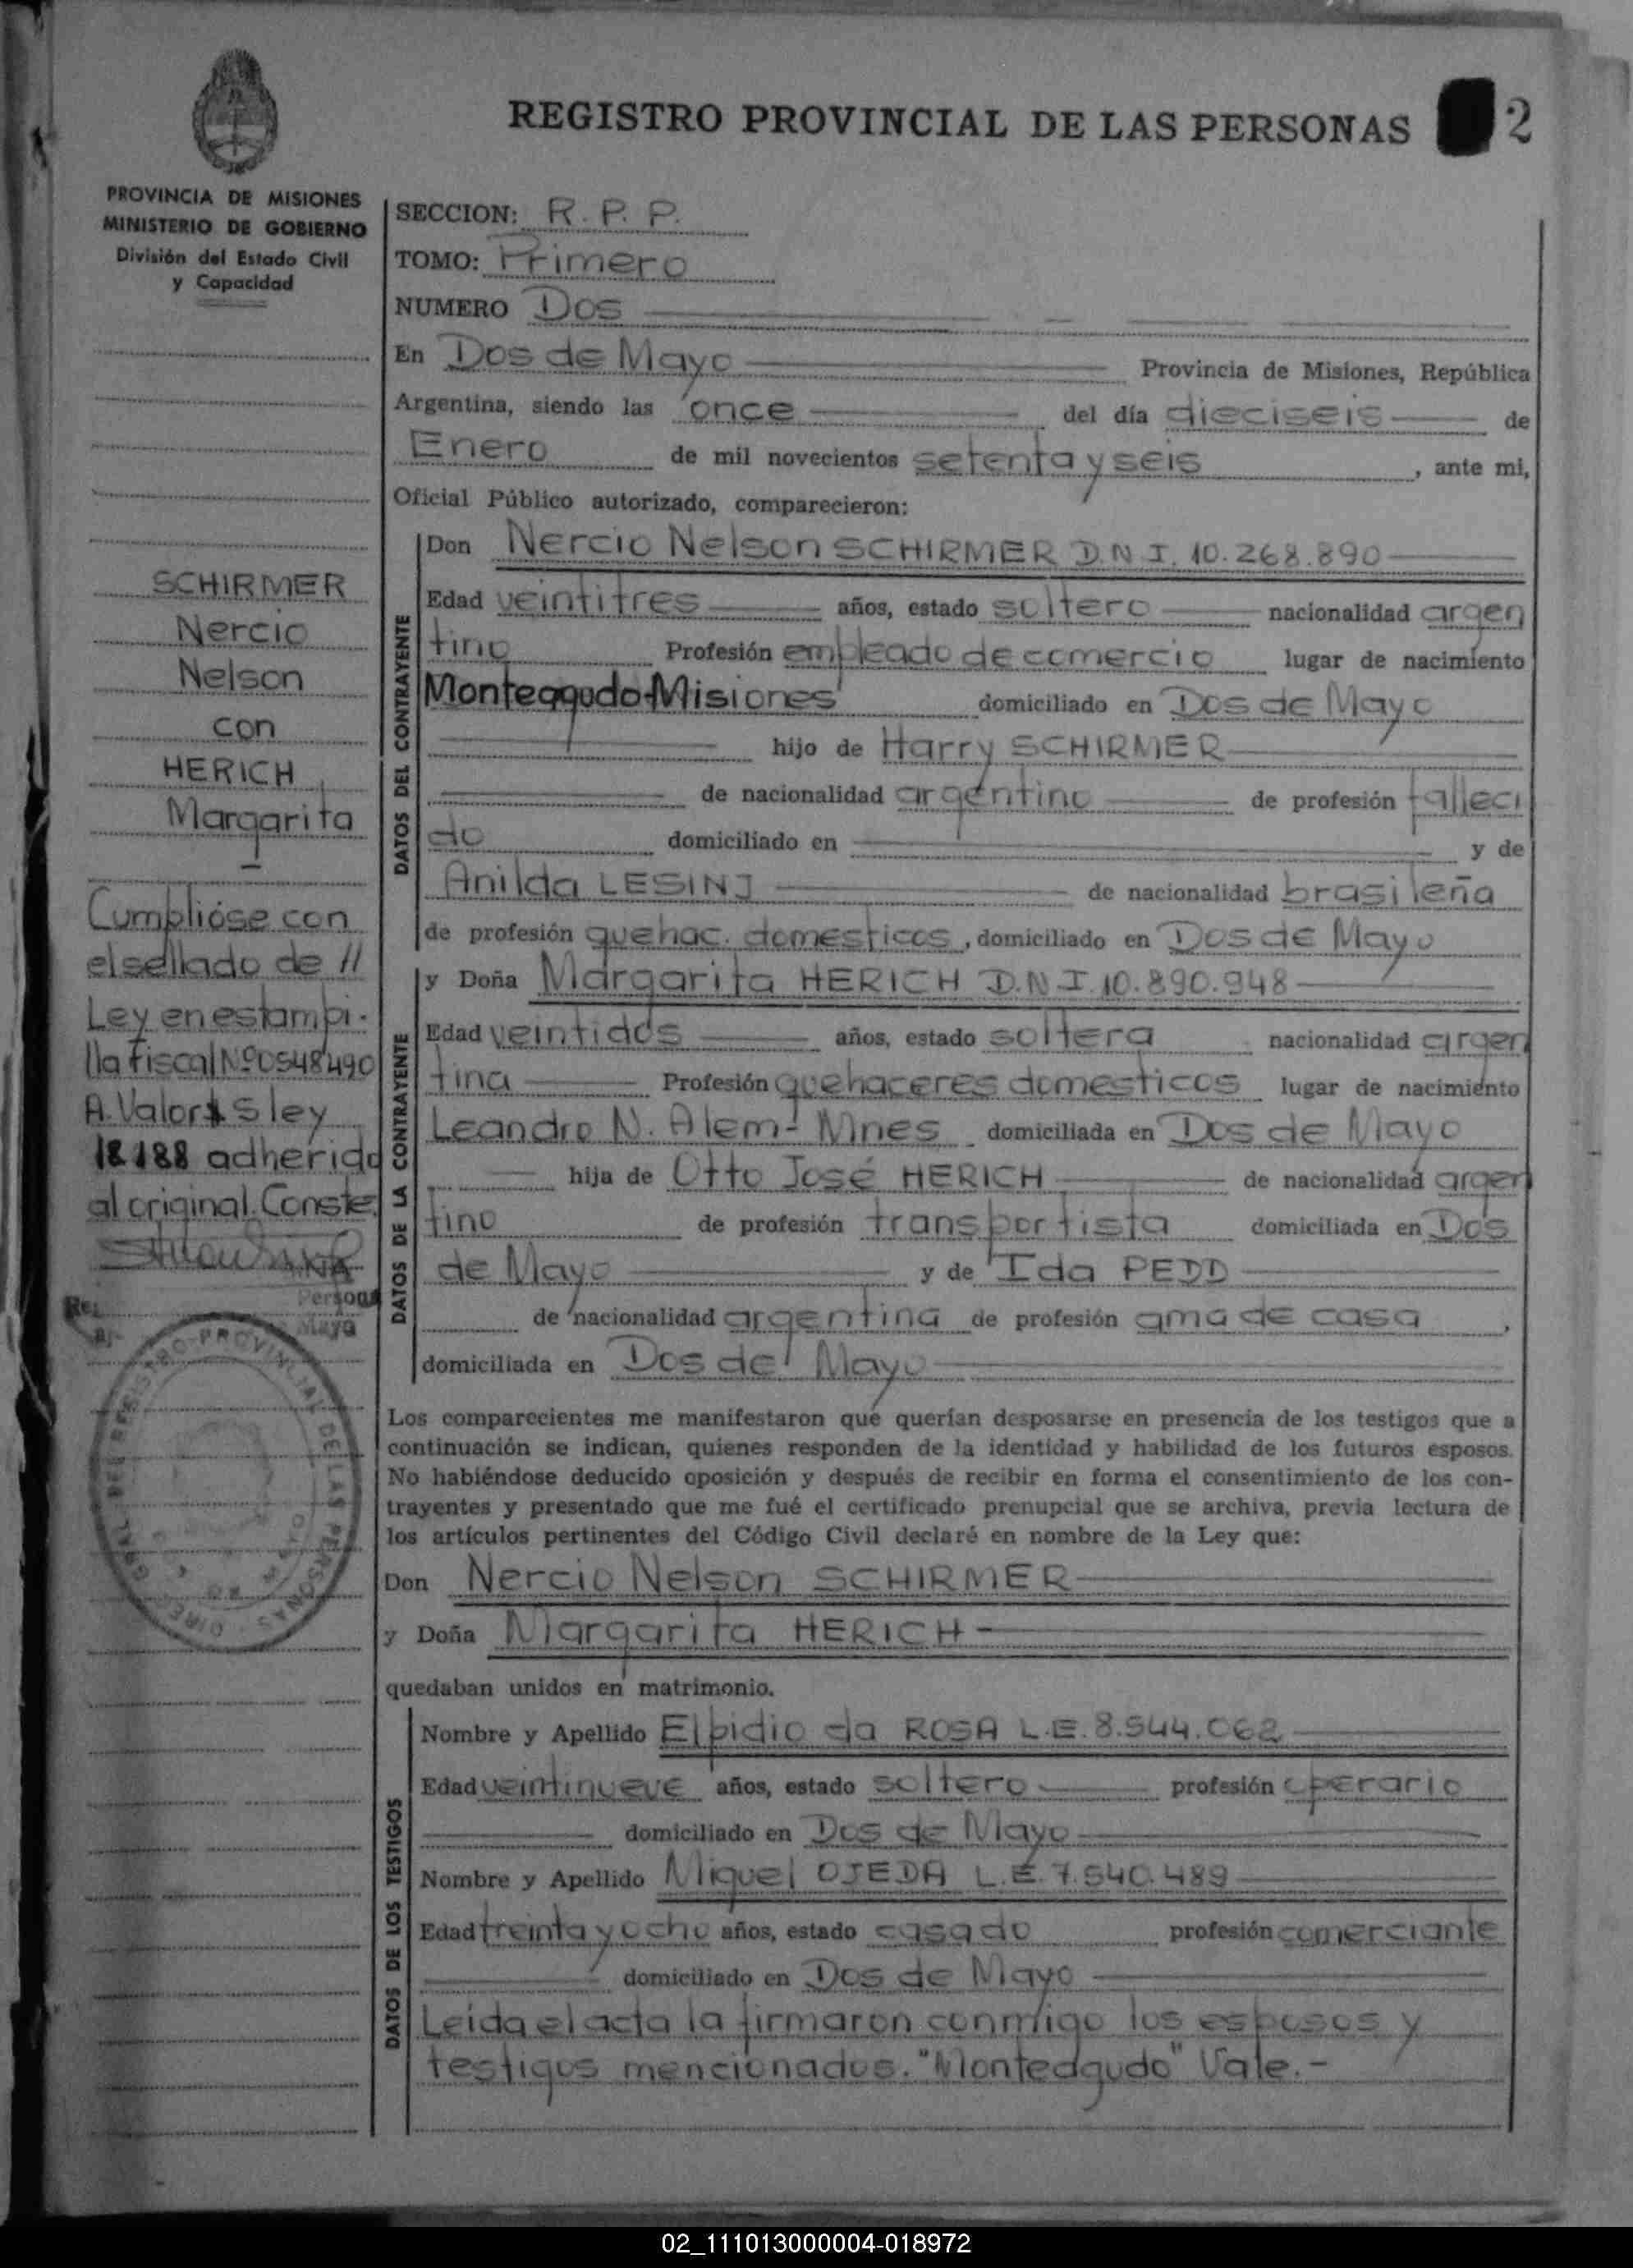 REGISTRO PROVINCIAL DE LAS PERSONAS 2
PROVINCIA DE MISIONES
MINISTERIO DE GOBIERNO
División del Estado Civil
y Capacidad
SCHIRMER
Nercio
Nelson
con
HERICH
Margarita
Cumplióse con
el sellado de //
Ley en estampi-
lla fiscal Nº 0548490
A. Valor $ 5 ley
18188 adherido
al original. Conste.
SECCION: R. P. P.
TOMO: Primero
NUMERO Dos
En Dos de Mayo Provincia de Misiones, República
Argentina, siendo las once del día dieciseis de
Enero de mil novecientos setenta y seis, ante mi,
Oficial Público autorizado, comparecieron:
DATOS DEL CONTRAYENTE
Don Nercio Nelson SCHIRMER D.N.I. 10.268.890
Edad veintitres años, estado soltero nacionalidad argen
tino Profesión empleado de comercio lugar de nacimiento
Monteagudo-Misiones domiciliado en Dos de Mayo
hijo de Harry SCHIRMER
de nacionalidad argentino de profesión falleci
do domiciliado en y de
Anilda LESINJ de nacionalidad brasileña
de profesión quehac. domesticos, domiciliado en Dos de Mayo
DATOS DE LA CONTRAYENTE
y Doña Margarita HERICH D.N.I. 10.890.948
Edad veintidós años, estado soltera nacionalidad argen
tina Profesión quehaceres domesticos lugar de nacimiento
Leandro N. Alem-Mnes domiciliada en Dos de Mayo
hija de Otto José HERICH de nacionalidad argen
tino de profesión transportista domiciliada en Dos
de Mayo y de Ida PEDD
de nacionalidad argentina de profesión ama de casa,
domiciliada en Dos de Mayo
Los comparecientes me manifestaron que querían desposarse en presencia de los testigos que a
continuación se indican, quienes responden de la identidad y habilidad de los futuros esposos.
No habiéndose deducido oposición y después de recibir en forma el consentimiento de los con-
trayentes y presentado que me fué el certificado prenupcial que se archiva, previa lectura de
los artículos pertinentes del Código Civil declaré en nombre de la Ley que:
Don Nercio Nelson SCHIRMER
y Doña Margarita HERICH
quedaban unidos en matrimonio.
DATOS DE LOS TESTIGOS
Nombre y Apellido Elpidio da ROSA L.E. 8.544.062
Edad veintinueve años, estado soltero profesión operario
domiciliado en Dos de Mayo
Nombre y Apellido Miguel OJEDA L.E. 7.540.489
Edad treinta y ocho años, estado casado profesión comerciante
domiciliado en Dos de Mayo
Leída el acta la firmaron conmigo los esposos y
testigos mencionados. "Monteagudo" Vale.-
02_111013000004-018972